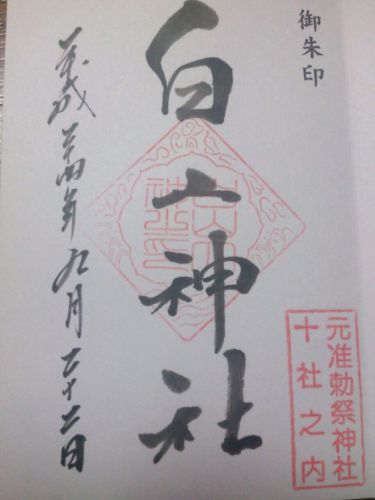 御朱印
元准勅祭神社
十社之内
白山神社
平成二十四年九月二十二日